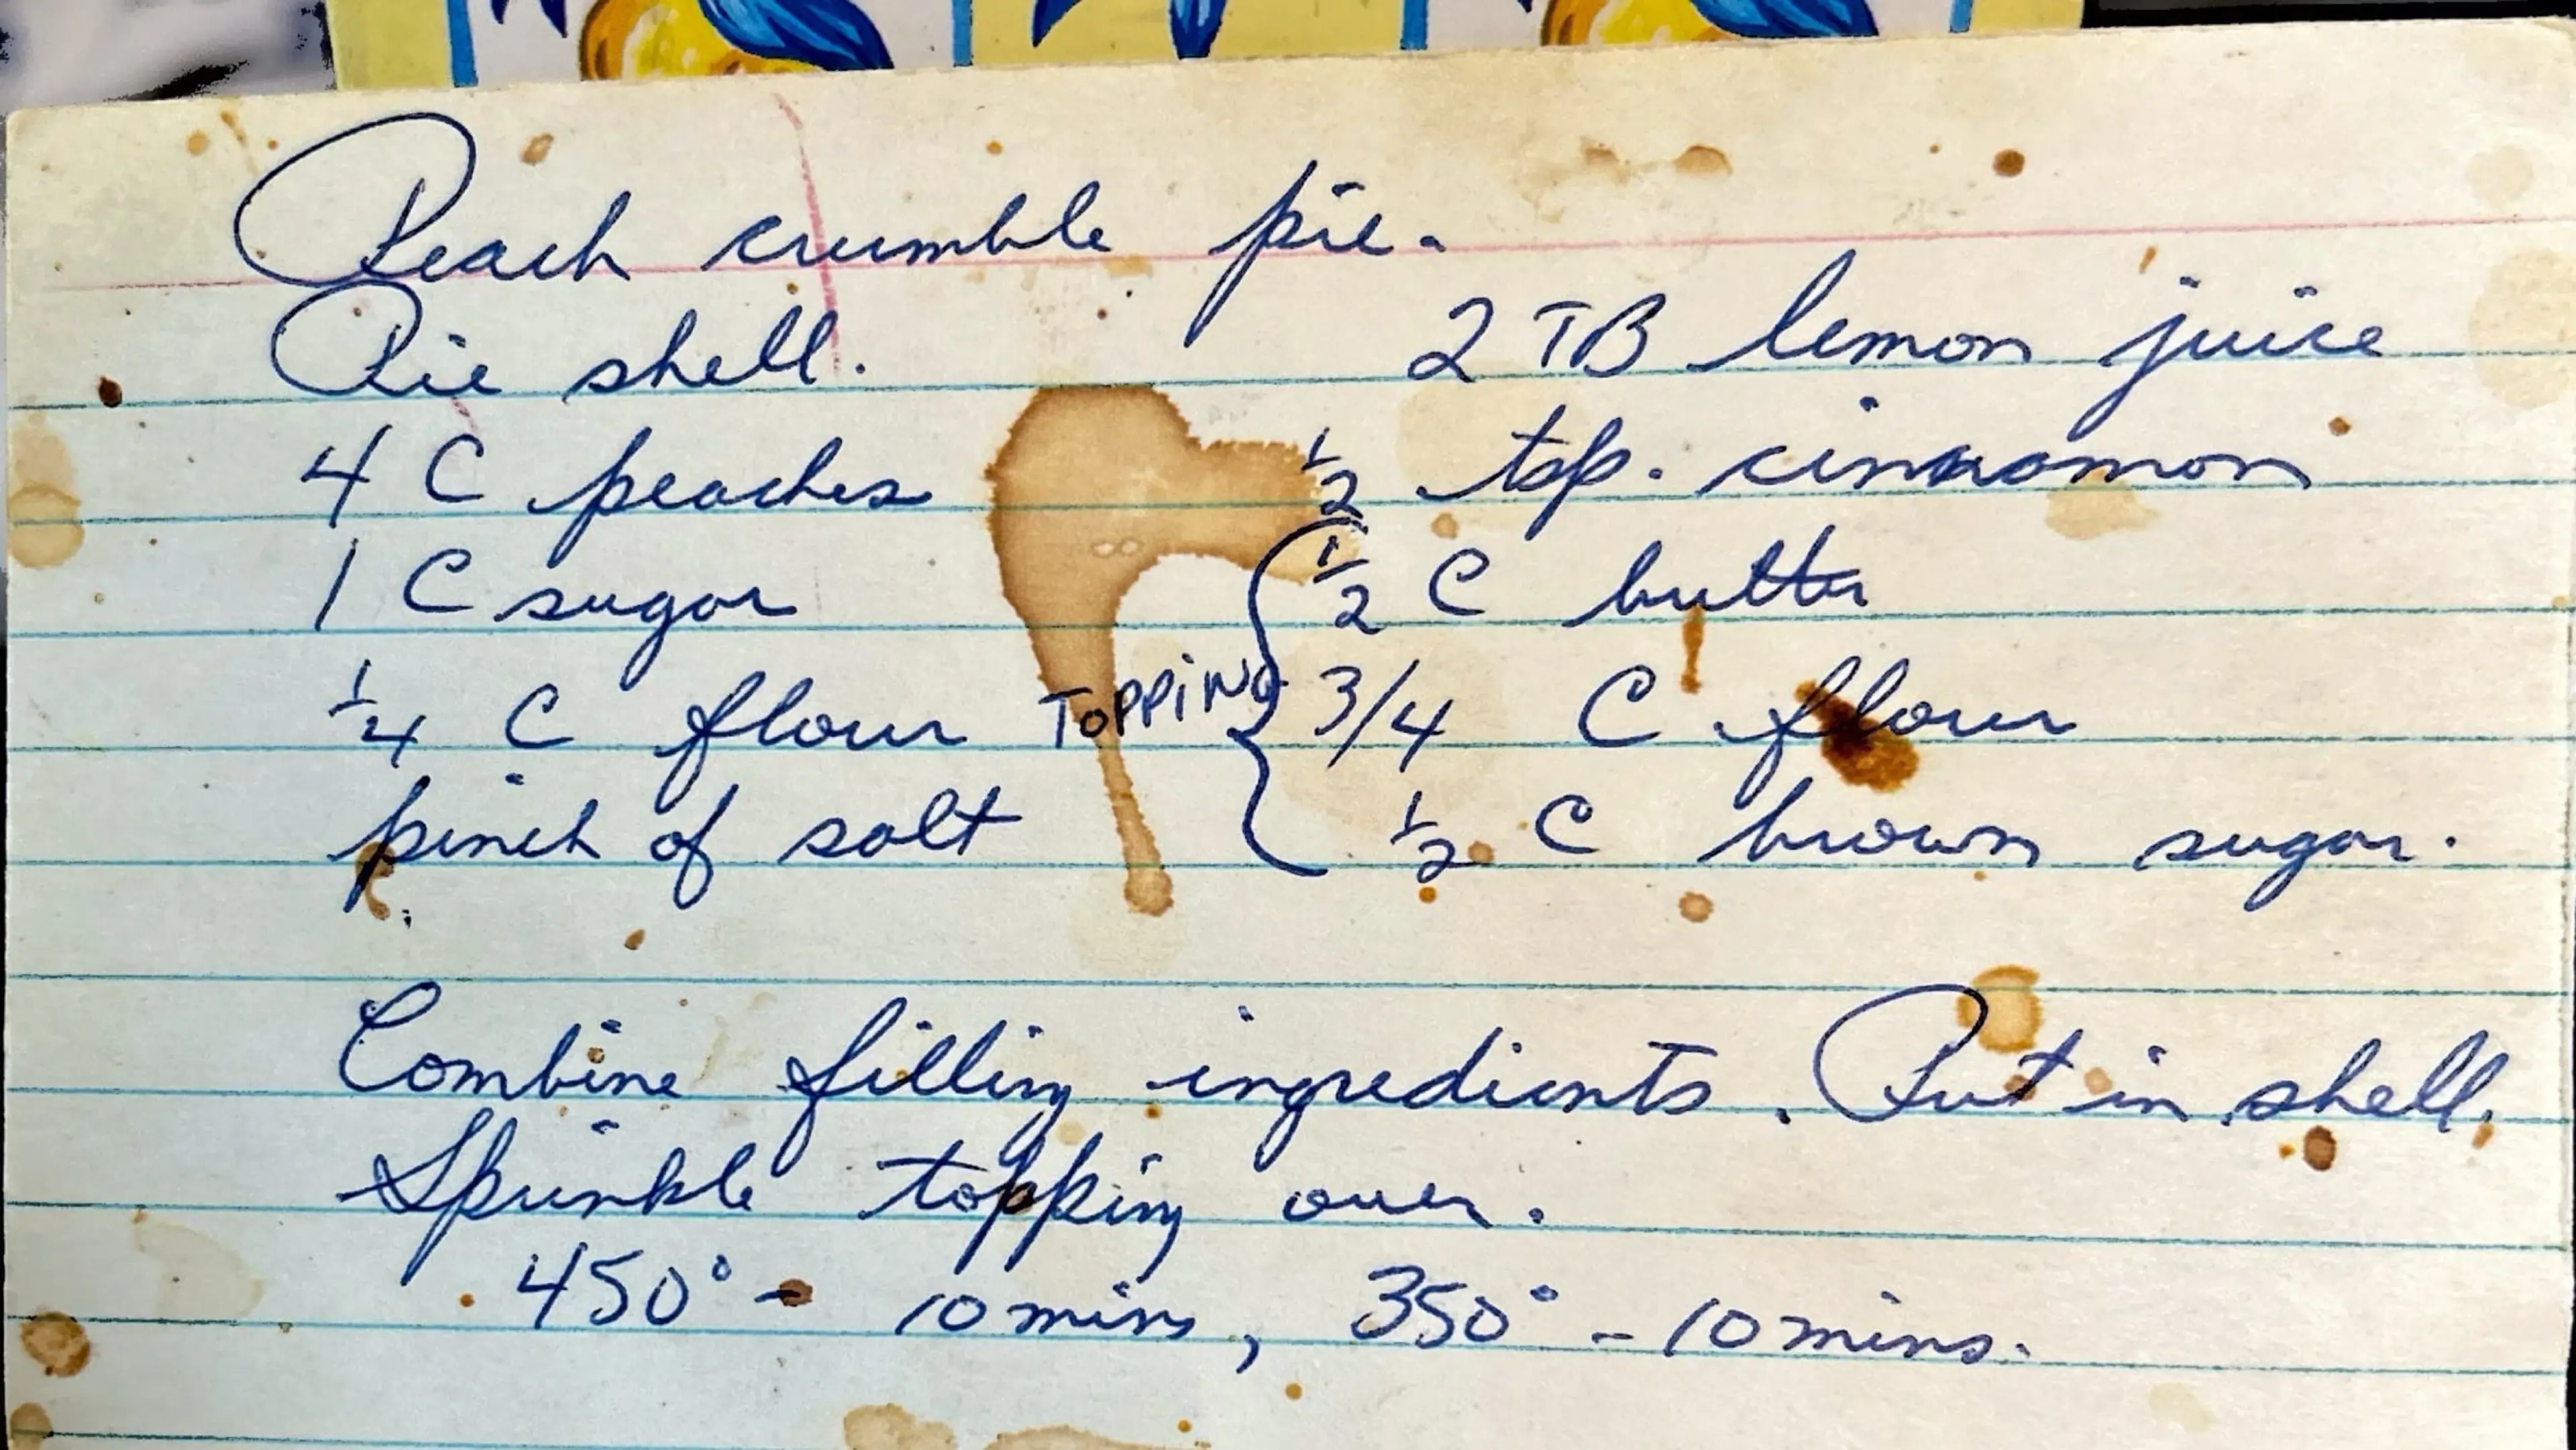 Peach crumble pie.
Pie shell.
4 C peaches
1 C sugar
1/4 C flour
pinch of salt
2 TB lemon juice
1/2 tsp. cinnamon
TOPPING
1/2 C butter
3/4 C flour
1/2 C brown sugar.
Combine filling ingredients. Put in shell.
Sprinkle topping over.
450° - 10 mins, 350° - 10 mins.